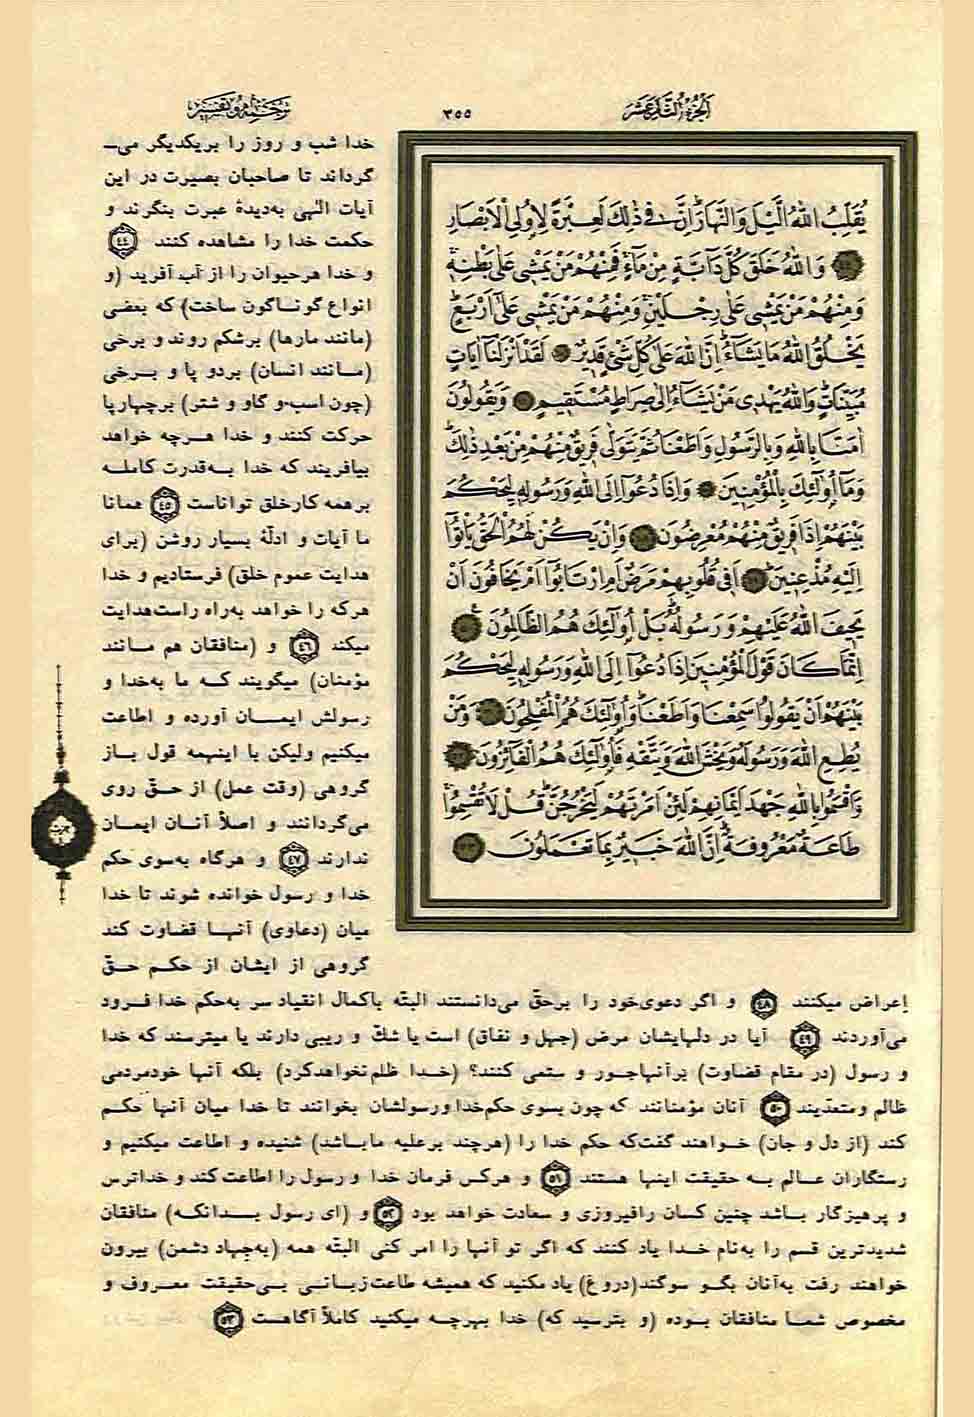 اَلْجُزءُ الثَّامِنَ عَشَرَ
٣٥٥
ترجمه و تفسیر
يُقَلِّبُ اللّٰهُ الَّيْلَ وَالنَّهَارَ اِنَّ فِى ذٰلِكَ لَعِبْرَةً لِاُولِى الْاَبْصَارِ
وَاللّٰهُ خَلَقَ كُلَّ دَآبَّةٍ مِنْ مَآءٍ فَمِنْهُمْ مَنْ يَمْشِى عَلٰى بَطْنِهِ
وَمِنْهُمْ مَنْ يَمْشِى عَلٰى رِجْلَيْنِ وَمِنْهُمْ مَنْ يَمْشِى عَلٰٓى اَرْبَعٍ
يَخْلُقُ اللّٰهُ مَا يَشَآءُ اِنَّ اللّٰهَ عَلٰى كُلِّ شَىْءٍ قَدِيرٌ لَقَدْ اَنْزَلْنَآ اٰيَاتٍ
مُبَيِّنَاتٍ وَاللّٰهُ يَهْدِى مَنْ يَشَآءُ اِلٰى صِرَاطٍ مُسْتَقِيمٍ وَيَقُولُونَ
اٰمَنَّا بِاللّٰهِ وَبِالرَّسُولِ وَاَطَعْنَا ثُمَّ يَتَوَلّٰى فَرِيقٌ مِنْهُمْ مِنْ بَعْدِ ذٰلِكَ
وَمَآ اُولٰٓئِكَ بِالْمُؤْمِنِينَ وَاِذَا دُعُوٓا اِلَى اللّٰهِ وَرَسُولِهِ لِيَحْكُمَ
بَيْنَهُمْ اِذَا فَرِيقٌ مِنْهُمْ مُعْرِضُونَ وَاِنْ يَكُنْ لَهُمُ الْحَقُّ يَاْتُوٓا
اِلَيْهِ مُذْعِنِينَ اَفِى قُلُوبِهِمْ مَرَضٌ اَمِ ارْتَابُوٓا اَمْ يَخَافُونَ اَنْ
يَحِيفَ اللّٰهُ عَلَيْهِمْ وَرَسُولُهُ بَلْ اُولٰٓئِكَ هُمُ الظَّالِمُونَ
اِنَّمَا كَانَ قَوْلَ الْمُؤْمِنِينَ اِذَا دُعُوٓا اِلَى اللّٰهِ وَرَسُولِهِ لِيَحْكُمَ
بَيْنَهُمْ اَنْ يَقُولُوا سَمِعْنَا وَاَطَعْنَا وَاُولٰٓئِكَ هُمُ الْمُفْلِحُونَ وَمَنْ
يُطِعِ اللّٰهَ وَرَسُولَهُ وَيَخْشَ اللّٰهَ وَيَتَّقْهِ فَاُولٰٓئِكَ هُمُ الْفَآئِزُونَ
وَاَقْسَمُوا بِاللّٰهِ جَهْدَ اَيْمَانِهِمْ لَئِنْ اَمَرْتَهُمْ لَيَخْرُجُنَّ قُلْ لَا تُقْسِمُوا
طَاعَةٌ مَعْرُوفَةٌ اِنَّ اللّٰهَ خَبِيرٌ بِمَا تَعْمَلُونَ
خدا شب و روز را بریکدیگر می‌ـ
گرداند تا صاحبان بصیرت در این
آیات الٰهی به‌دیدهٔ عبرت بنگرند و
حکمت خدا را مشاهده کنند ٤٤
و خدا هرحیوان را از آب آفرید (و
انواع گوناگون ساخت) که بعضی
(مانند مارها) برشکم روند و برخی
(مانند انسان) بردو پا و برخی
(چون اسب و گاو و شتر) برچهارپا
حرکت کنند و خدا هرچه خواهد
بیافریند که خدا به‌قدرت کامله
برهمه کارخلق تواناست ٤٥ همانا
ما آیات و ادلّهٔ بسیار روشن (برای
هدایت عموم خلق) فرستادیم و خدا
هرکه را خواهد به‌راه راست‌هدایت
میکند ٤٦ و (منافقان هم مانند
مؤمنان) میگویند که ما به‌خدا و
رسولش ایمان آورده و اطاعت
میکنیم ولیکن با اینهمه قول باز
گروهی (وقت عمل) از حقّ روی
می‌گردانند و اصلاً آنان ایمان
ندارند ٤٧ و هرگاه به‌سوی حکم
خدا و رسول خوانده شوند تا خدا
میان (دعاوی) آنها قضاوت کند
گروهی از ایشان از حکم حقّ
اعراض میکنند ٤٨ و اگر دعوی‌خود را برحقّ می‌دانستند البتّه باکمال انقیاد سر به‌حکم خدا فرود
می‌آوردند ٤٩ آیا در دلهایشان مرض (جهل و نفاق) است یا شکّ و ریبی دارند یا میترسند که خدا
و رسول (در مقام قضاوت) برآنهاجور و ستمی کنند؟ (خدا ظلم‌نخواهدکرد) بلکه آنها خودمردمی
ظالم و متعدّیند ٥٠ آنان مؤمنانند که چون بسوی حکم‌خدا ورسولشان بخوانند تا خدا میان آنها حکم
کند (از دل و جان) خواهند گفت‌که حکم خدا را (هرچند برعلیه ماباشد) شنیده و اطاعت میکنیم و
رستگاران عالم به حقیقت اینها هستند ٥١ و هرکس فرمان خدا و رسول را اطاعت کند و خداترس
و پرهیزگار باشد چنین کسان رافیروزی و سعادت خواهد بود ٥٢ و (ای رسول بدانکه) منافقان
شدیدترین قسم را به‌نام خدا یاد کنند که اگر تو آنها را امر کنی البتّه همه (به‌جهاد دشمن) بیرون
خواهند رفت به‌آنان بگو سوگند(دروغ) یاد مکنید که همیشه طاعت‌زبانی بی‌حقیقت معروف و
مخصوص شما منافقان بوده (و بترسید که) خدا بهرچه میکنید کاملاً آگاهست ٥٣